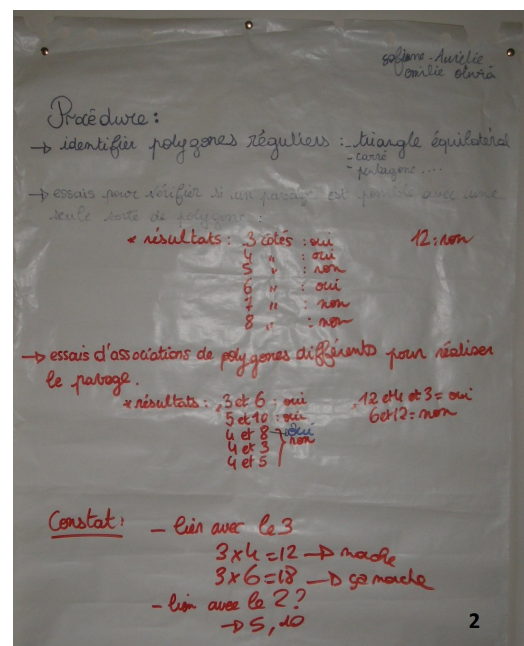 sofiane - Aurélie
émilie olivia
Procédure :
→ identifier polygones réguliers : - triangle équilatéral
- carré
- pentagone ....
→ essais pour vérifier si un pavage est possible avec une
seule sorte de polygone :
* résultats : 3 côtés : oui 12 : non
4 " : oui
5 " : non
6 " : oui
7 " : non
8 " : non
→ essais d'associations de polygones différents pour réaliser
le pavage.
* résultats : 3 et 6 : oui 12 et 4 et 3 = oui
5 et 10 : oui 6 et 12 = non
4 et 8 → oui
4 et 3 } non
4 et 5
Constat : - lien avec le 3
3 x 4 = 12 → marche
3 x 6 = 18 → ça marche
- lien avec le 2 ?
→ 5, 10
2